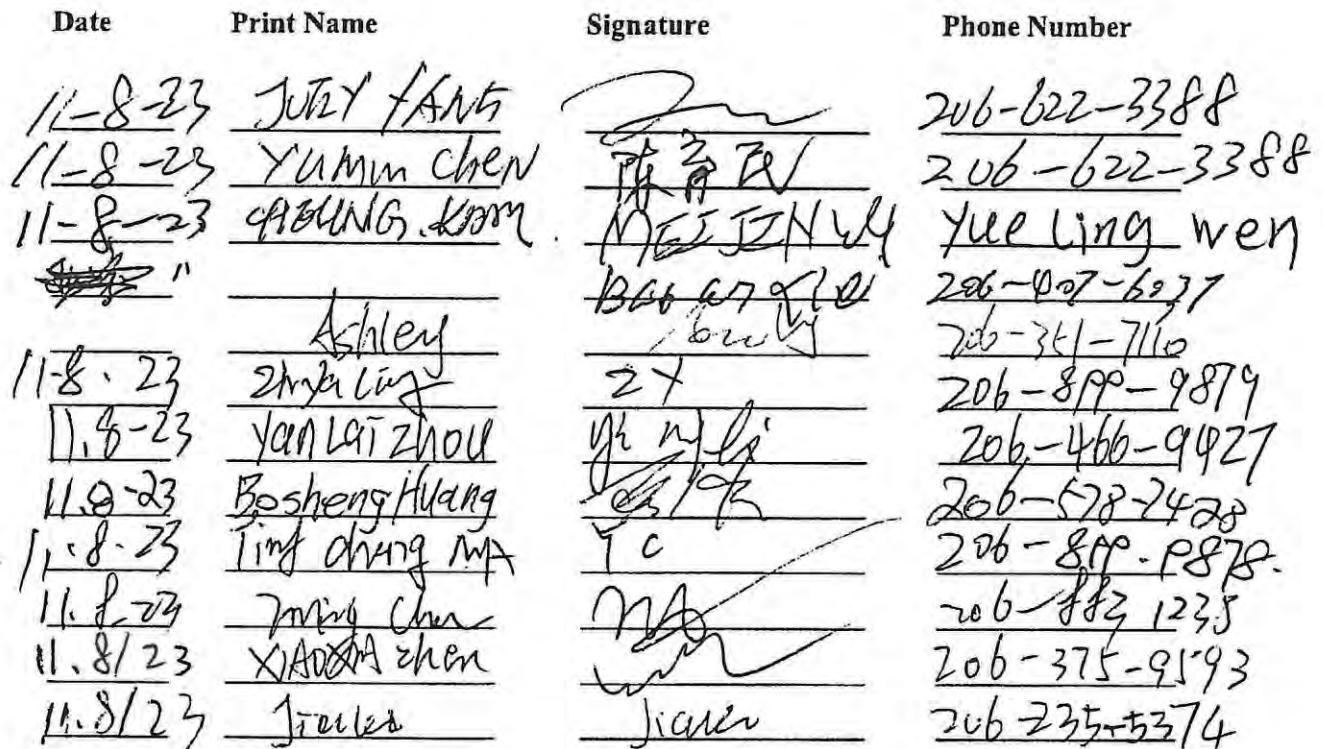 Date Print Name Signature Phone Number
11-8-23 JUDY YANG 206-622-3388
11-8-23 Yumin Chen 陳育民 206-622-3388
11-8-23 CHEUNG. KAM MEI JEN WU Yue Ling Wen
" Bao 206-407-6037
Ashley 206-351-7110
11-8.23 ZhiYa Ling ZY 206-899-9879
11.8-23 Yan Lai Zhou 206-466-9427
11.8-23 Bosheng Huang 206-578-7428
11.8.23 Ting Cheng MA TC 206-899.9878.
11.8-23 ming Chen 206-883 1235
11.8/23 XIAOXIA Zhen 206-375-9593
11.8/23 206-235-5374